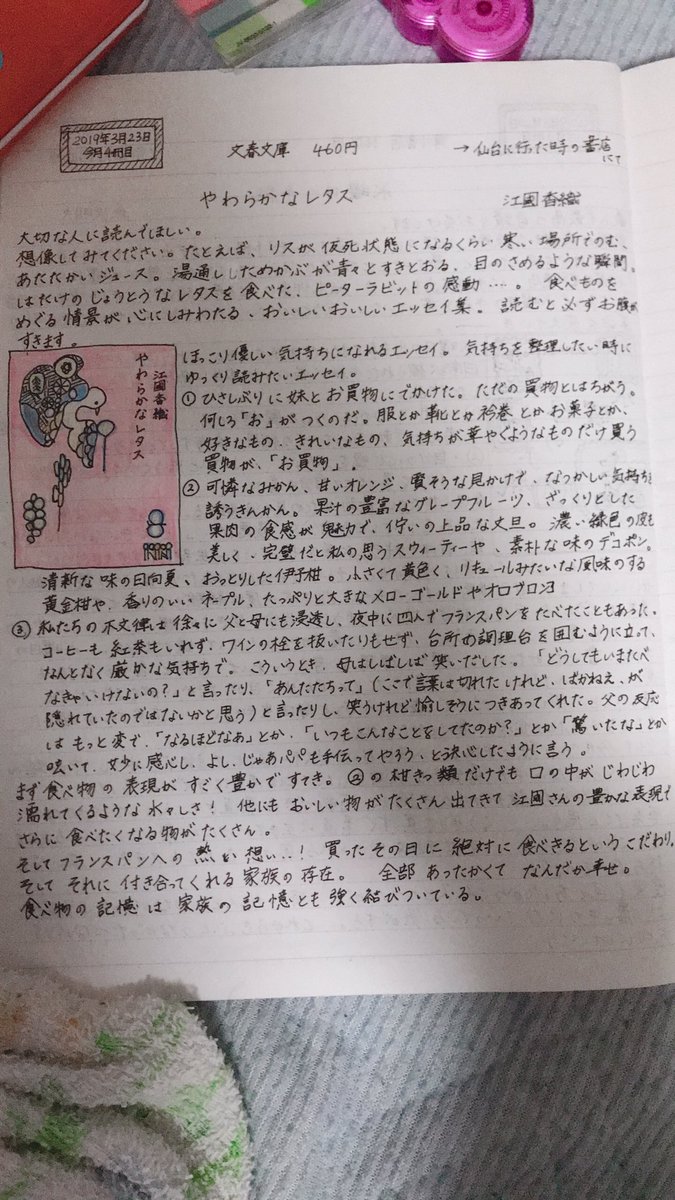 2019年3月23日
今月4冊目
文春文庫 460円
→仙台に行った時の書店
にて
やわらかなレタス
江國香織
大切な人に読んでほしい。
想像してみてください。たとえば、リスが仮死状態になるくらい寒い場所でのむ、
あたたかいジュース。湯通ししためかぶが青々とすきとおる、目のさめるような瞬間。
はたけのじょうとうなレタスを食べた、ピーターラビットの感動‥‥。食べものを
めぐる情景が心にしみわたる、おいしいおいしいエッセイ集。読むと必ずお腹が
すきます。
江國香織
やわらかなレタス
ほっこり優しい気持ちになれるエッセイ。気持ちを整理したい時に
ゆっくり読みたいエッセイ。
①ひさしぶりに妹とお買物にでかけた。ただの買物とはちがう。
何しろ「お」がつくのだ。服とか靴とか衿巻とかお菓子とか、
好きなもの、きれいなもの、気持ちが華やぐようなものだけ買う
買物が、「お買物」。
②可憐なみかん、甘いオレンジ、賢そうな見かけで、なつかしい気持ちを
誘うきんかん。果汁の豊富なグレープフルーツ、ざっくりとした
果肉の食感が魅力で、佇いの上品な文旦。濃い緑色の皮も
美しく、完璧だと私の思うスウィーティーや、素朴な味のデコポン。
清新な味の日向夏、おっとりした伊予柑。ふさくて黄色く、リキュールみたいな風味のする
黄金柑や、香りのいいネーブル、たっぷりと大きなメローゴールドやオロブロンコ
③私たちの不文律は徐々に父と母にも浸透し、夜中に四人でフランスパンをたべたこともあった。
コーヒーも紅茶もいれず、ワインの栓を抜いたりもせず、台所の調理台を囲むように立って、
なんとなく厳かな気持ちで。こういうとき、母はしばしば笑いだした。「どうしてもいまたべ
なきゃいけないの?」と言ったり、「あんたたちって」(ここで言葉は切れたけれど、ばかねえ、が
隠れていたのではないかと思う)と言ったりし、笑うけれど愉しそうにつきあってくれた。父の反応
はもっと変で、「なるほどなあ」とか、「いつもこんなことをしてたのか?」とか「驚いたな」とか
呟いて、妙に感心し、よし、じゃあパパも手伝ってやろう、と決心したように言う。
まず食べ物の表現がすごく豊かですてき。②の柑きつ類だけでも口の中がじわじわ
濡れてくるような水々しさ!他にもおいしい物がたくさん出てきて江國さんの豊かな表現で
さらに食べたくなる物がたくさん。
そしてフランスパンへの熱い想い‥!買ったその日に絶対に食べきるというこだわり。
そしてそれに付き合ってくれる家族の存在。全部あったかくてなんだか幸せ。
食べ物の記憶は家族の記憶とも強く結びついている。